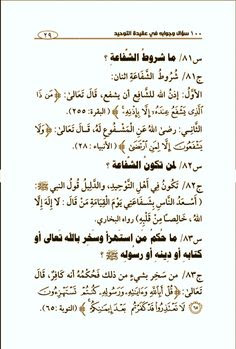 ١٠٠ سؤال وجوابه في عقيدة التوحيد
٢٩
س٨١/ ما شروطُ الشَّفاعة ؟
ج٨١/ شُرُوطُ الشَّفَاعَةِ اثنان:
الأوَّلُ: إذنُ اللهِ للشَّافعِ أن يشفع، قَالَ تَعَالَىٰ: ﴿مَن ذَا
ٱلَّذِى يَشْفَعُ عِندَهُۥٓ إِلَّا بِإِذْنِهِۦ﴾ (البقرة: ٢٥٥).
الثَّاني: رضى اللهُ عَنِ المَشْفُوعِ لَهُ، قَالَ تَعَالَىٰ: ﴿وَلَا
يَشْفَعُونَ إِلَّا لِمَنِ ٱرْتَضَىٰ﴾ (الأنبياء: ٢٨).
س٨٢/ لمن تكونُ الشَّفاعة ؟
ج٨٢/ تَكُونُ في أَهْلِ التَّوْحِيدِ، والدَّلِيلُ قَولُ النبي ﷺ:
(أَسْعَدُ النَّاسِ بِشَفَاعَتِي يَوْمَ القِيَامَةِ مَنْ قَالَ: لا إِلَهَ إِلَّا
اللهُ، خَالِصًا مِنْ قَلْبِهِ) رواه البخاري.
س٨٣/ ما حُكمُ من استهزأ وسخر بالله تعالى أو
كتابه أو دينه أو رسوله ﷺ ؟
ج٨٣/ من سَخِرَ بِشيءٍ مِن ذَلكَ فَحُكْمُهُ أنه كَافِرٌ، قَالَ
تَعَالَىٰ: ﴿قُلْ أَبِٱللَّهِ وَءَايَٰتِهِۦ وَرَسُولِهِۦ كُنتُمْ تَسْتَهْزِءُونَ
٦٥ لَا تَعْتَذِرُوا۟ قَدْ كَفَرْتُم بَعْدَ إِيمَٰنِكُمْ﴾ (التوبة: ٦٥).